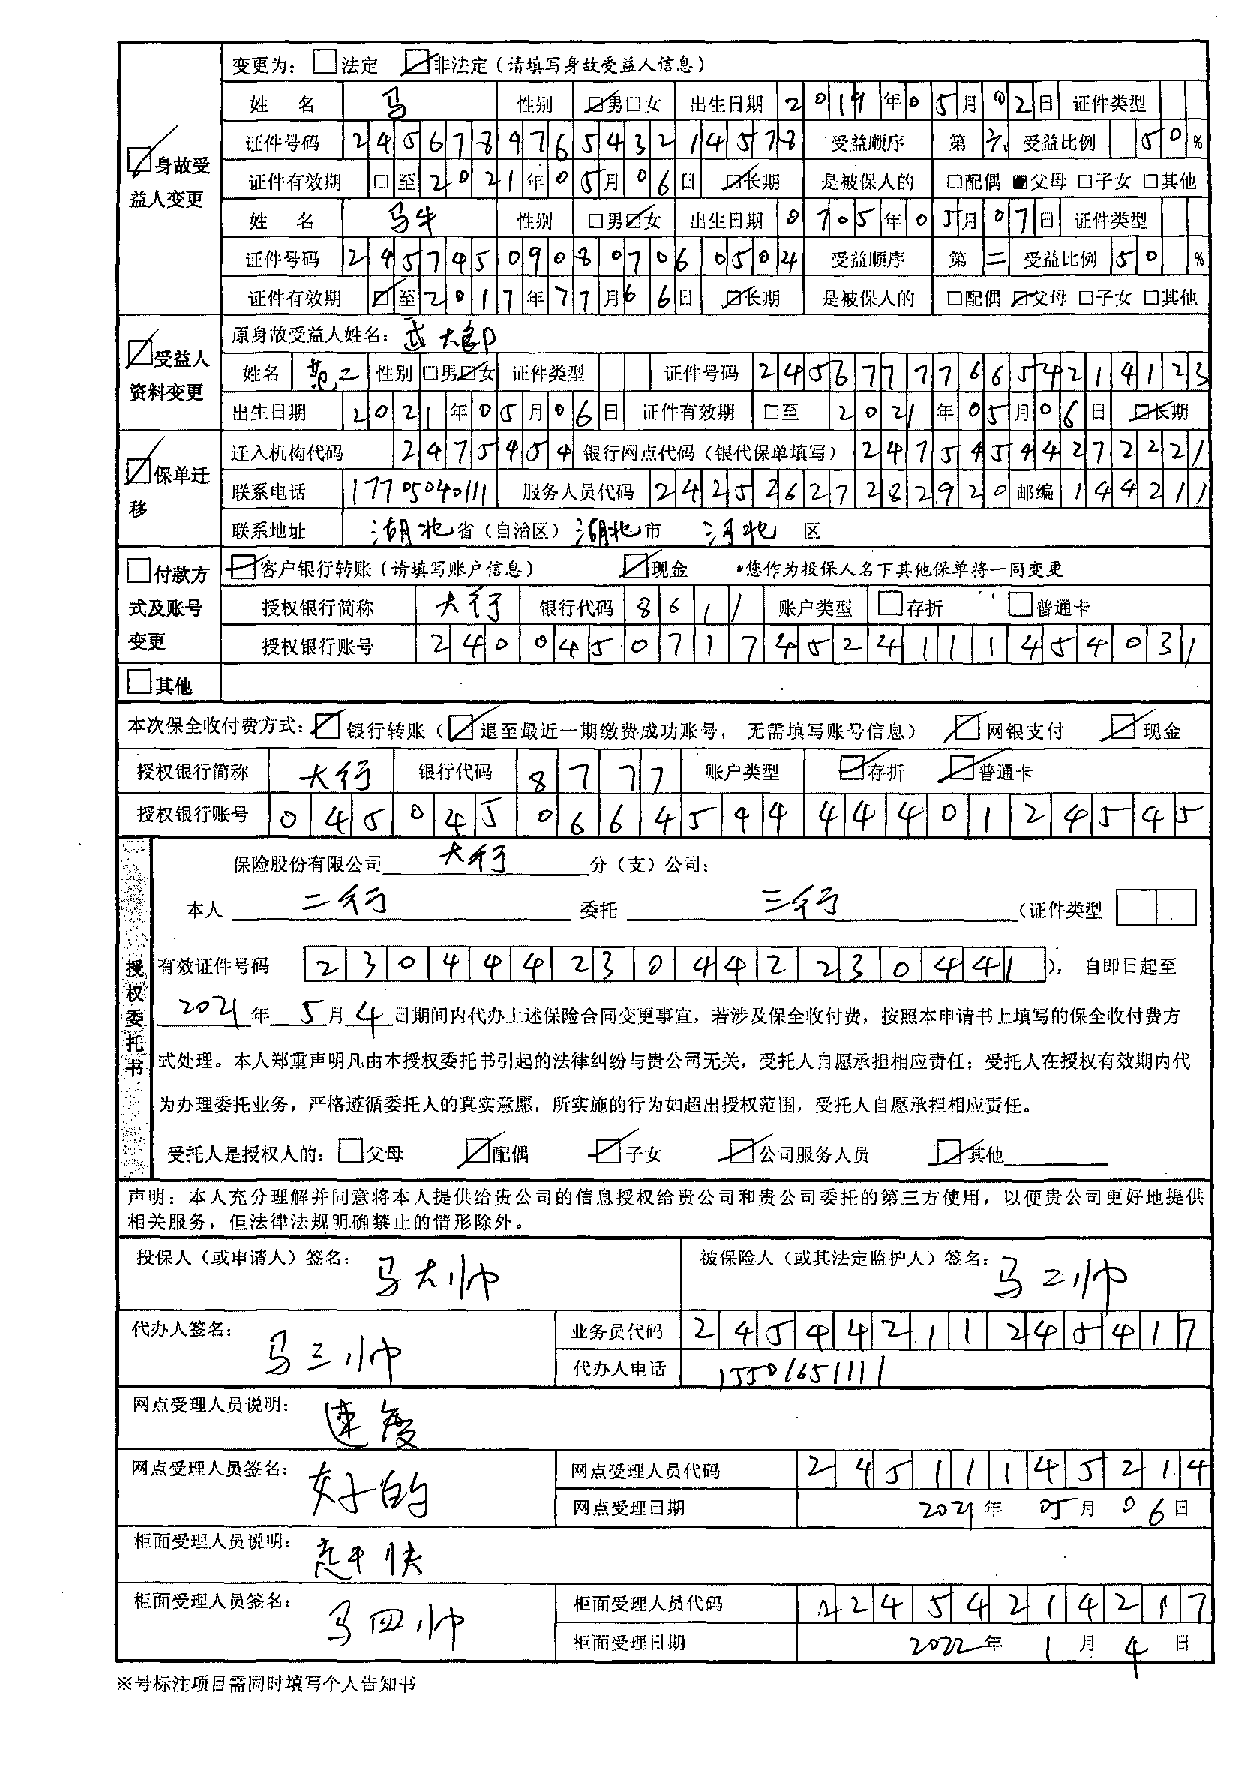 变更为：□法定 ☑非法定（请填写身故受益人信息）
☑身故受益人变更
姓 名 马 性别 ☑男□女 出生日期 2019年05月02日 证件类型
证件号码 245678976543214578 受益顺序 第 受益比例 50%
证件有效期 □至2021年05月06日 ☑长期 是被保人的 □配偶 ■父母 □子女 □其他
姓 名 马牛 性别 □男☑女 出生日期 0705年05月07日 证件类型
证件号码 245745090807060504 受益顺序 第二 受益比例 50%
证件有效期 ☑至2017年77月66日 ☑长期 是被保人的 □配偶 ☑父母 □子女 □其他
☑受益人资料变更
原身故受益人姓名：武大郎
姓名 性别 □男☑女 证件类型 证件号码 245677776654214123
出生日期 2021年05月06日 证件有效期 □至 2021年05月06日 ☑长期
☑保单迁移
迁入机构代码 2475454 银行网点代码（银代保单填写） 24754544272221
联系电话 17705040111 服务人员代码 24252627282920 邮编 144211
联系地址 湖北省（自治区）湖北市 河北 区
□付款方式及账号变更
☑客户银行转账（请填写账户信息） ☑现金 *您作为投保人名下其他保单将一同变更
授权银行简称 大行 银行代码 8611 账户类型 □存折 □普通卡
授权银行账号 24004507174524111454031
□其他
本次保全收付费方式：☑银行转账（☑退至最近一期缴费成功账号，无需填写账号信息） ☑网银支付 ☑现金
授权银行简称 大行 银行代码 8777 账户类型 ☑存折 ☑普通卡
授权银行账号 04504506645944440124545
授权委托书
保险股份有限公司 大行 分（支）公司：
本人 二行 委托 三行 （证件类型
有效证件号码 230444230442230441），自即日起至
2021年 5月 4日期间内代办上述保险合同变更事宜，若涉及保全收付费，按照本申请书上填写的保全收付费方
式处理。本人郑重声明凡由本授权委托书引起的法律纠纷与贵公司无关，受托人自愿承担相应责任；受托人在授权有效期内代
为办理委托业务，严格遵循委托人的真实意愿，所实施的行为如超出授权范围，受托人自愿承担相应责任。
受托人是授权人的：□父母 ☑配偶 ☑子女 ☑公司服务人员 ☑其他
声明：本人充分理解并同意将本人提供给贵公司的信息授权给贵公司和贵公司委托的第三方使用，以便贵公司更好地提供
相关服务，但法律法规明确禁止的情形除外。
投保人（或申请人）签名：马大帅 被保险人（或其法定监护人）签名：马二帅
代办人签名：马三帅 业务员代码 2454421124 5417
代办人电话 15501651111
网点受理人员说明：速度
网点受理人员签名：好的 网点受理人员代码 24511145214
网点受理日期 2021年 05月 06日
柜面受理人员说明：
柜面受理人员签名：马四帅 柜面受理人员代码 224542 14217
柜面受理日期 2022年 1月 4日
※号标注项目需同时填写个人告知书